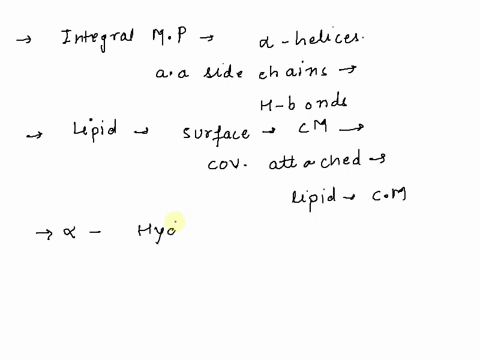 → Integral M.P → α-helices.
a.a side chains →
H-bonds
→ Lipid → surface → CM →
cov. attached →
lipid → C.M
→ α - Hyd